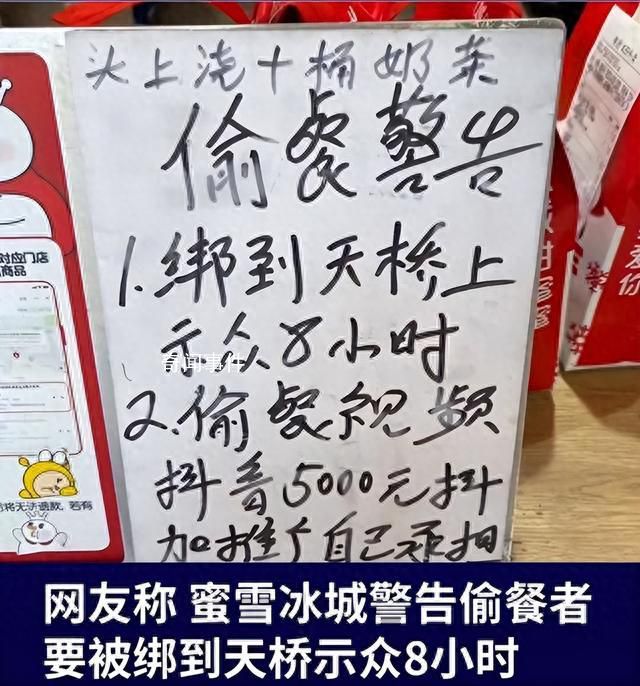 头上浇十桶奶茶
偷餐警告
1.绑到天桥上
示众8小时
奇闻事件
2.偷餐视频
抖音5000元抖
加推广自己承担
对应门店
商品
将无法退款,若有
爱
你
网友称 蜜雪冰城警告偷餐者
要被绑到天桥示众8小时